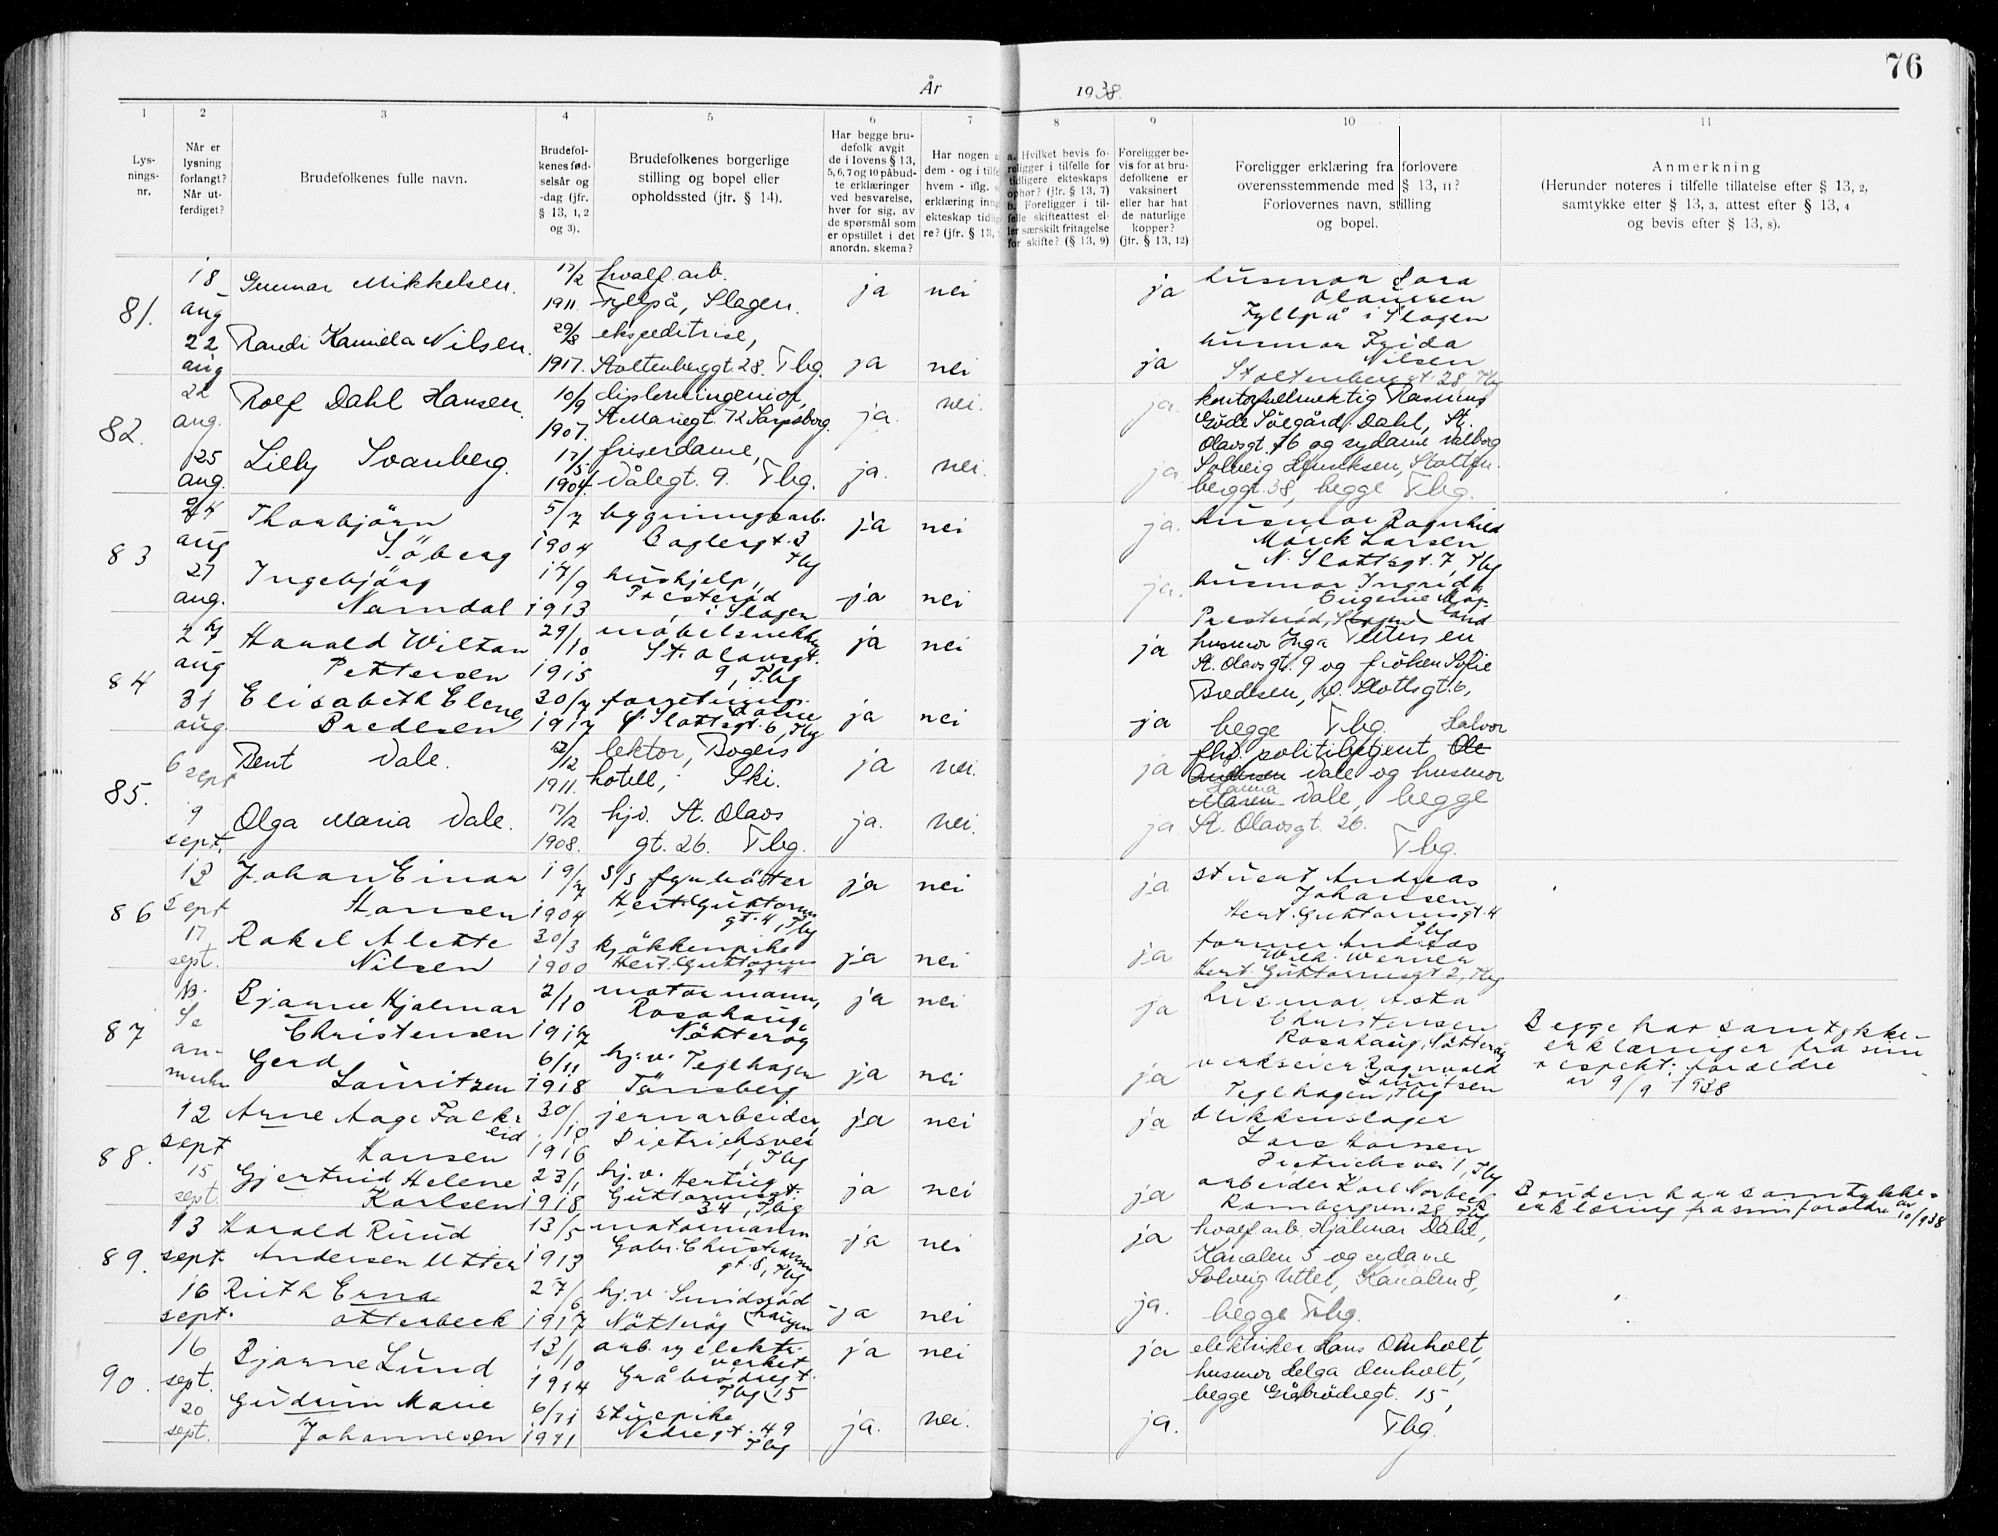 76
År 1938.
1 2 3 4 5 6 7 8 9 10 11
Lys-
nings-
nr.
Når er
lysning
forlangt?
Når ut-
ferdiget?
Brudefolkenes fulle navn.
Brudefol-
kenes fød-
selsår og
-dag (jfr.
§ 13, 1, 2
og 3).
Brudefolkenes borgerlige
stilling og bopel eller
opholdssted (jfr. § 14).
Har begge bru-
defolk avgit
de i lovens § 13,
5, 6, 7 og 10 påbud-
te erklæringer
ved besvarelse,
hver for sig, av
de spørsmål som
er opstillet i det
anordn. skema?
Har nogen a
dem - og i tilf
hvem - iflg. s
erklæring inng
ekteskap tidlig
re? (jfr. § 13,
a. Hvilket bevis fo-
religger i tilfelle for
tidligere ekteskaps
ophør? (jfr. § 13, 7)
b. Foreligger i til-
felle skifteattest el-
ler særskilt fritagelse
for skifte? (§ 13, 9)
Foreligger be-
vis for at bru-
defolkene er
vaksinert
eller har hat
de naturlige
kopper?
(jfr. § 13, 12)
Foreligger erklæring fra forlovere
overensstemmende med § 13, 11?
Forlovernes navn, stilling
og bopel.
Anmerkning
(Herunder noteres i tilfelle tillatelse efter § 13, 2,
samtykke efter § 13, 3, attest efter § 13, 4
og bevis efter § 13, 8).
81.
18 aug
Gunnar Mikkelsen.
17/2 1911.
hvalf. arb.
Fyllpå, Slagen.
ja nei ja
husmor Lara
Olansen
Fyllpå i Slagen
22 aug
Randi Kamilla Nilsen.
29/8 1917.
ekspeditrise,
Stoltenberggt. 28. Tbg.
ja nei ja
husmor Frida
Nilsen
Stoltenberggt. 28, Tbg
82.
22 aug.
Rolf Dahl Hansen.
10/9 1907.
diplomingeniør,
St Mariegt. 72 Sarpsborg.
ja. nei. ja.
kontorfullmektig Rasmus
Gude Sölgård Dahl, St.
Olavsgt. 76 og sydame Valborg
25 aug.
Lilly Svanberg.
17/5 1904.
friserdame,
Dålegt. 9. Tbg.
ja. nei. ja.
Solveig Henriksen, Stolten-
berggt. 38, begge Tbg.
83
24 aug
Thorbjörn
Söberg
5/7 1904
bygningsarb.
Baglergt. 3
Tbg
ja nei ja.
husmor Ragnhild
Mörck Larsen
N. Slottsgt. 7, Tbg
27 aug.
Ingebjörg
Namdal
14/9 1913
hushjelp,
Presteröd
i Slagen
ja nei ja.
husmor Ingrid
Eugenie Möp-
land
Presteröd, Slagen
84
27 aug
Harald Wiltan
Pettersen
29/10 1915
möbelsnekker
St. Olavsgt.
9, Tbg
ja nei ja
husmor Inga Pettersen
St. Olavsgt. 9 og fröken Sofie
Bredesen, Ö. Slottsgt. 6,
31 aug.
Elisabeth Elene
Bredesen
30/7 1917
forretnings-
dame
Ö. Slottsgt. 6, Tbg
ja nei ja
begge Tbg. Halvor
85.
6 sept
Bent Dale.
12/12 1911.
lektor, Bogers
hotell, Ski.
ja nei. ja
fhv. politibetjent Ole
Andersen Dale og husmor
Hanna
Maren Dale, begge
9 sept.
Olga Maria Dale.
17/2 1908.
hjv. St. Olavs
gt. 26. Tbg.
ja. nei. ja
St. Olavsgt. 26.
Tbg.
86
13 sept
Johan Einar
Hansen
19/7 1904
s/s fyrböter
Hert. Guttorms
gt. 4, Tbg
ja nei ja
stuert Andreas
Johansen
Hert. Guttormsgt. 4
Tbg
17 sept.
Rakel Alette
Nilsen
30/3 1900
kjökkenpike
Hert. Guttorms
gt. 4
ja nei ja
former Andreas
Wilh. Werner
Hert. Guttormsgt. 2, Tbg
87
NB.
Se
an-
merkn
Bjarne Hjalmar
Christensen
2/10 1917
motormann,
Rosahaug,
Nötteröy
ja nei ja
husmor Asta
Christensen
Rosahaug, Nötteröy
Begge har samtykke-
erklæringer fra sine
respekt. foreldre
av 9/9 1938
Gerd
Lauritzen
6/11 1918
hj.v. Teglhagen
Tönsberg
ja nei ja
verkseier Ragnvald
Lauritsen
Teglhagen, Tbg
88.
12 sept
Arne Aage Falk-
eid
Hansen
30/10 1916
jernarbeider
Dietrichsvei
1, Tbg
ja nei ja
blikkenslager
Lars Hansen
Dietrichsvei 1, Tbg
15 sept.
Gjertrud Helene
Karlsen
23/1 1918
hj.v. Hertug
Guttormsgt.
34, Tbg
ja nei ja
arbeider Karl Norbeck
Rambergvn. 28 Tbg
Bruden har samtykke-
erklæring fra sine foreldre av
10/9 38
89.
13 sept.
Harald Ruud
Andersen Utter
13/5 1913
motormann
Gabr. Christensens
gt. 8, Tbg
ja nei ja
hvalf. arb. Hjalmar Dahl,
Kanalen 5 og sydame
Solveig Uttet, Kanalen 8,
16 sept.
Ruth Erna
Otterbeck
27/6 1917
hj.v. Smidsröd
haugen
Nötteröy
ja nei ja.
begge Tbg.
90.
16 sept.
Bjarne Lund
13/10 1914
arb. v/elektr.
verket
Gråbrödregt.
Tbg 15
ja nei ja
elektriker Hans Omholt,
husmor Helga Omholt,
begge Gråbrödregt. 15,
20 sept.
Gudrun Marie
Johannesen
6/11 1911
stuepike
Nedregt. 49
Tbg
ja. nei. ja.
Tbg.